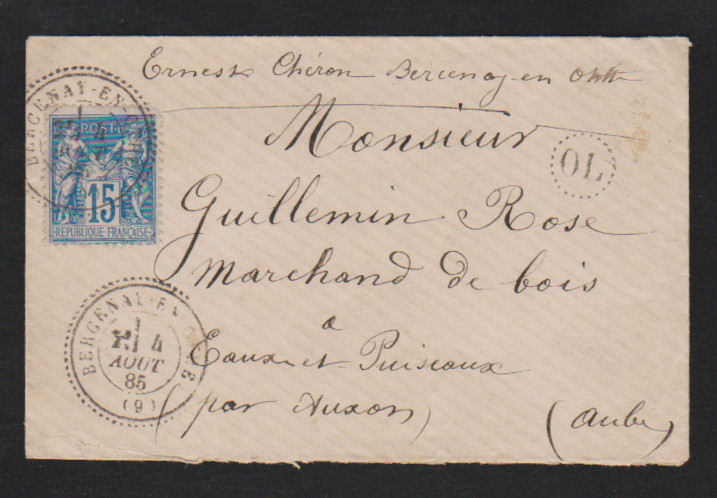 Ernest Chéron Bercenay en Othe
BERCENAY-EN-OTHE
4
POSTES
15
REPUBLIQUE FRANÇAISE
Monsieur
OL
Guillemin Rose
Marchand de bois
à
Eaux-et-Puiseaux
(par Auxon)
(Aube)
BERCENAY-EN-OTHE
4
AOUT
85
(9)